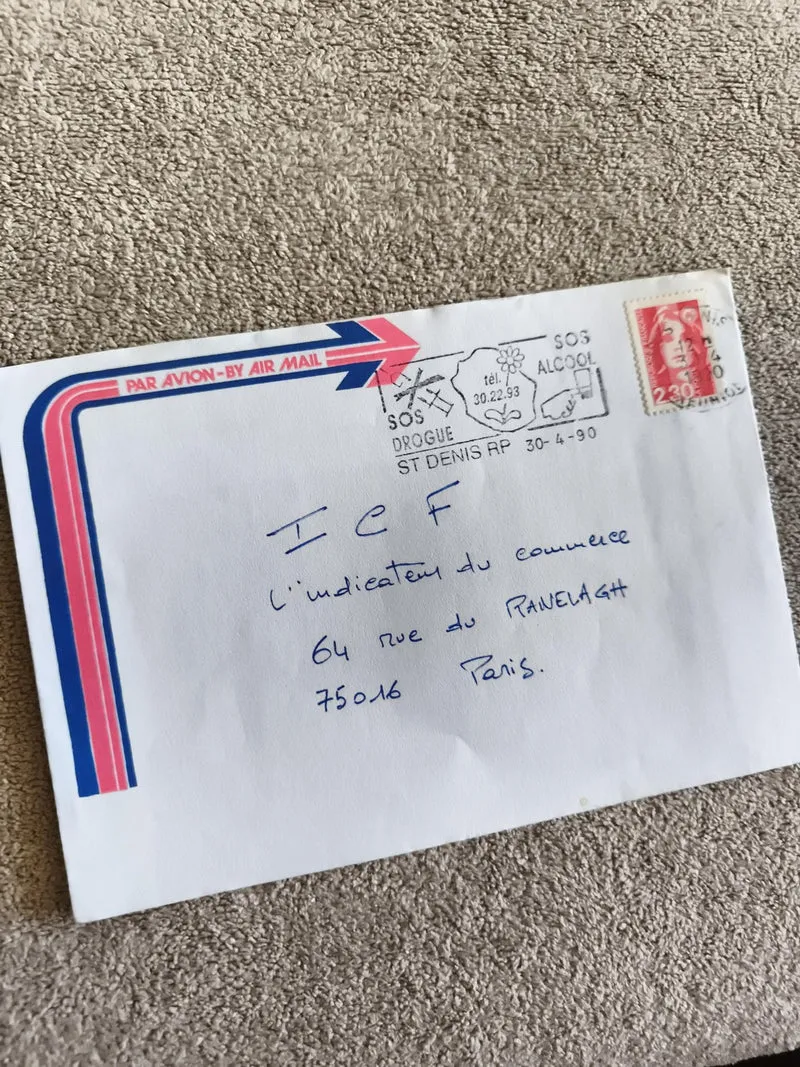 PAR AVION-BY AIR MAIL
SOS
ALCOOL
tél.
30.22.93
SOS
DROGUE
ST DENIS RP 30-4-90
2,30
I C F
L'indicateur du commerce
64 rue du RANELAGH
75016 Paris.